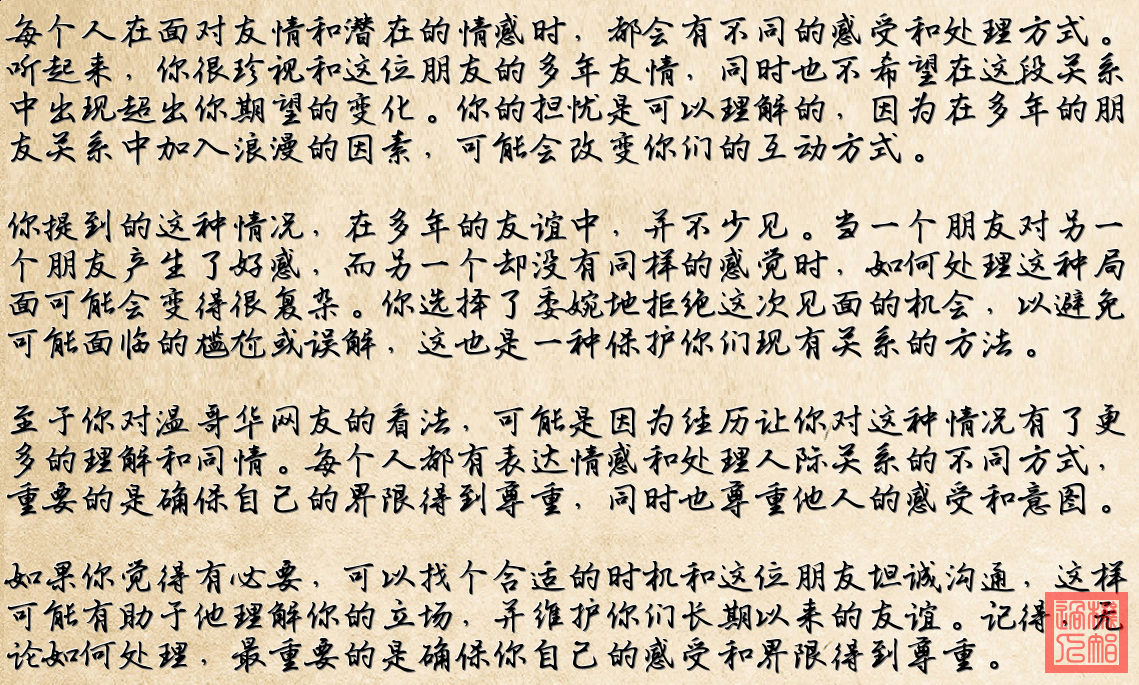 每个人在面对友情和潜在的情感时，都会有不同的感受和处理方式。
听起来，你很珍视和这位朋友的多年友情，同时也不希望在这段关系
中出现超出你期望的变化。你的担忧是可以理解的，因为在多年的朋
友关系中加入浪漫的因素，可能会改变你们的互动方式。
你提到的这种情况，在多年的友谊中，并不少见。当一个朋友对另一
个朋友产生了好感，而另一个却没有同样的感觉时，如何处理这种局
面可能会变得很复杂。你选择了委婉地拒绝这次见面的机会，以避免
可能面临的尴尬或误解，这也是一种保护你们现有关系的方法。
至于你对温哥华网友的看法，可能是因为经历让你对这种情况有了更
多的理解和同情。每个人都有表达情感和处理人际关系的不同方式，
重要的是确保自己的界限得到尊重，同时也尊重他人的感受和意图。
如果你觉得有必要，可以找个合适的时机和这位朋友坦诚沟通，这样
可能有助于他理解你的立场，并维护你们长期以来的友谊。记得，无
论如何处理，最重要的是确保你自己的感受和界限得到尊重。